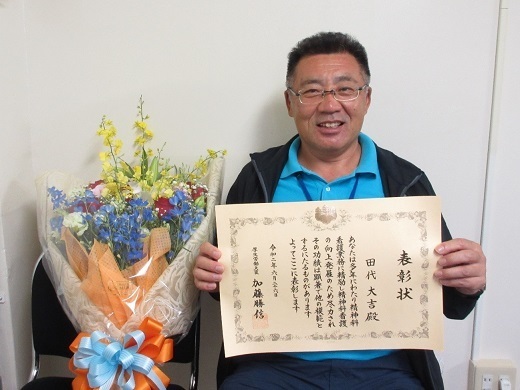 表彰状
田代 大吉 殿
あなたは多年にわたり精神科
看護業務に精励し精神科看護
の向上発展のため尽力され
その功績は顕著で他の模範と
するにたるものがあります
よってここに表彰します
令和二年六月二十六日
厚生労働大臣 加藤勝信